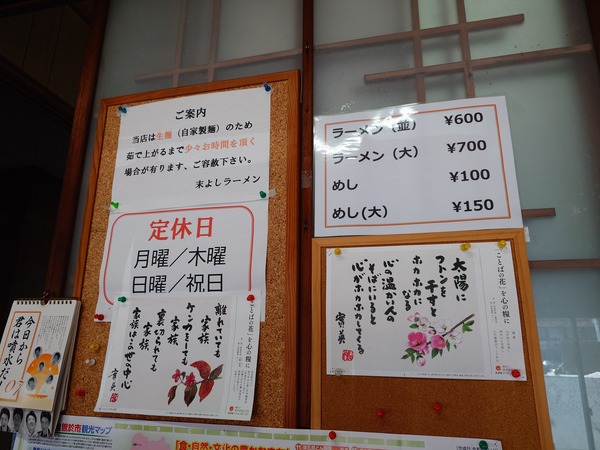 ご案内
当店は生麺（自家製麺）のため
茹で上がるまで少々お時間を頂く
場合が有ります、ご容赦下さい。
末よしラーメン
定休日
月曜／木曜
日曜／祝日
ラーメン（並） ¥600
ラーメン（大） ¥700
めし ¥100
めし(大) ¥150
「ことばの花」を心の糧に
太陽に
フトンを干すと
ホカホカになる
心の温かい人の
そばにいると
心がホカホカしてくる
「ことばの花」を心の糧に
離れていても
家族
ケンカをしても
家族
裏切られても
家族
家族はこの世の中心
今日から
君は噴水だ!
07
観光マップ